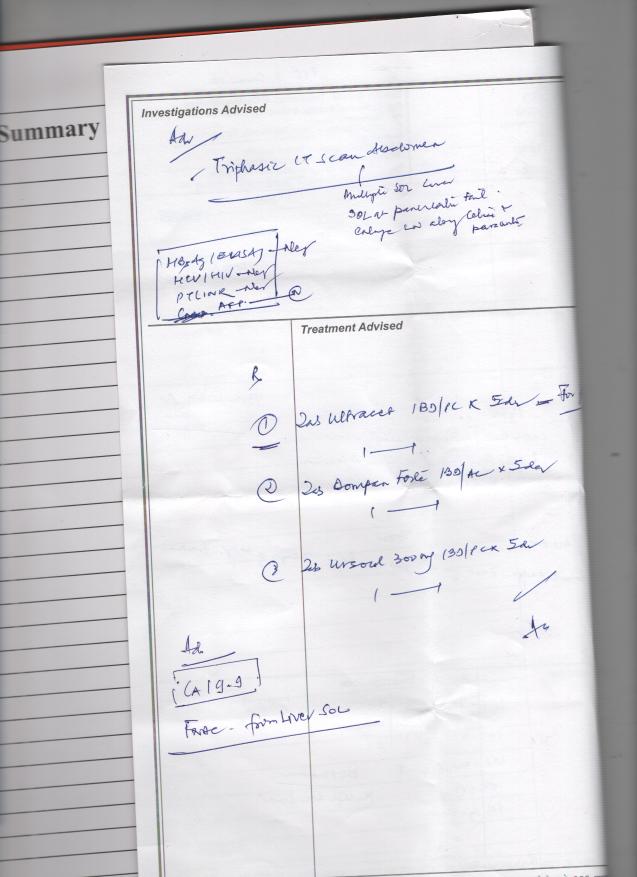 Summary
Investigations Advised
Adv
Triphasic CT Scan Abdomen
Multiple SOL Liver
SOL at pancreatic tail.
enlarge LN along Celiac &
HBsAg (ELISA) - Neg
HCV/HIV - Neg
PT/INR - Nor
AFP.
Treatment Advised
R
① Tab Ultracet 1BD/PC x 5day - For
② Tab Dompan Forte 1BD/AC x 5day
③ Tab Ursocol 300mg 1BD/PC x 5day
Adv
CA 19-9
FNAC - from Liver SOL